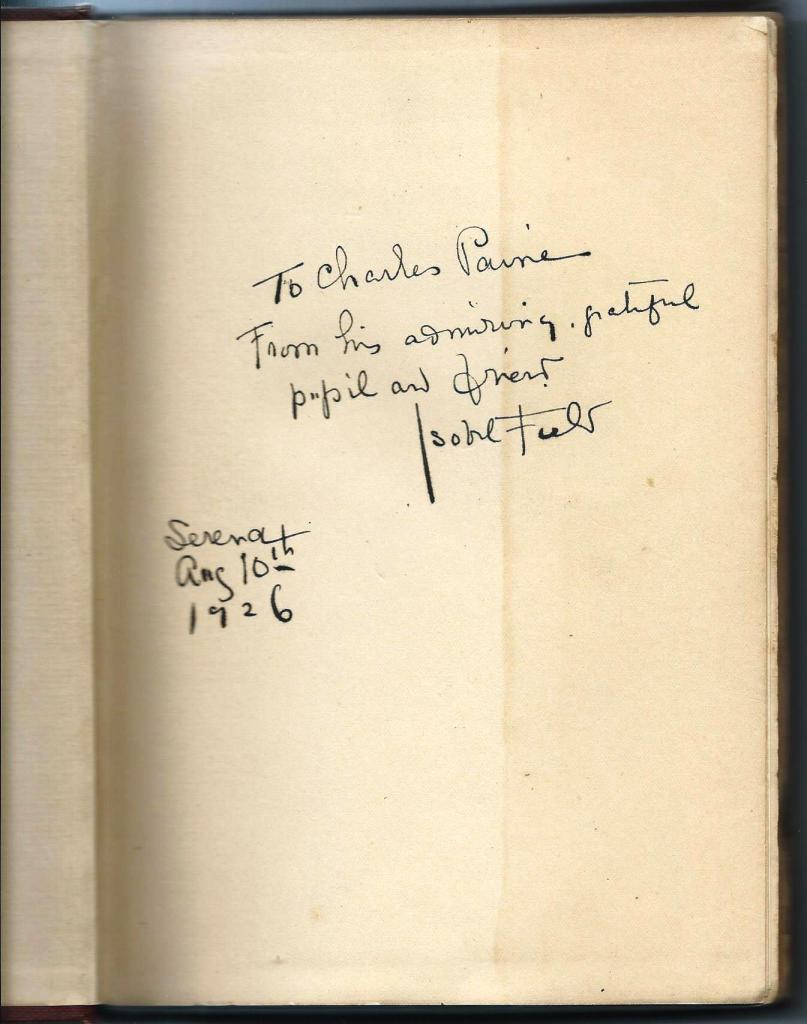 To Charles Paine
From his admiring, grateful
pupil and friend
Isobel Field
Serena
Aug 10th
1926